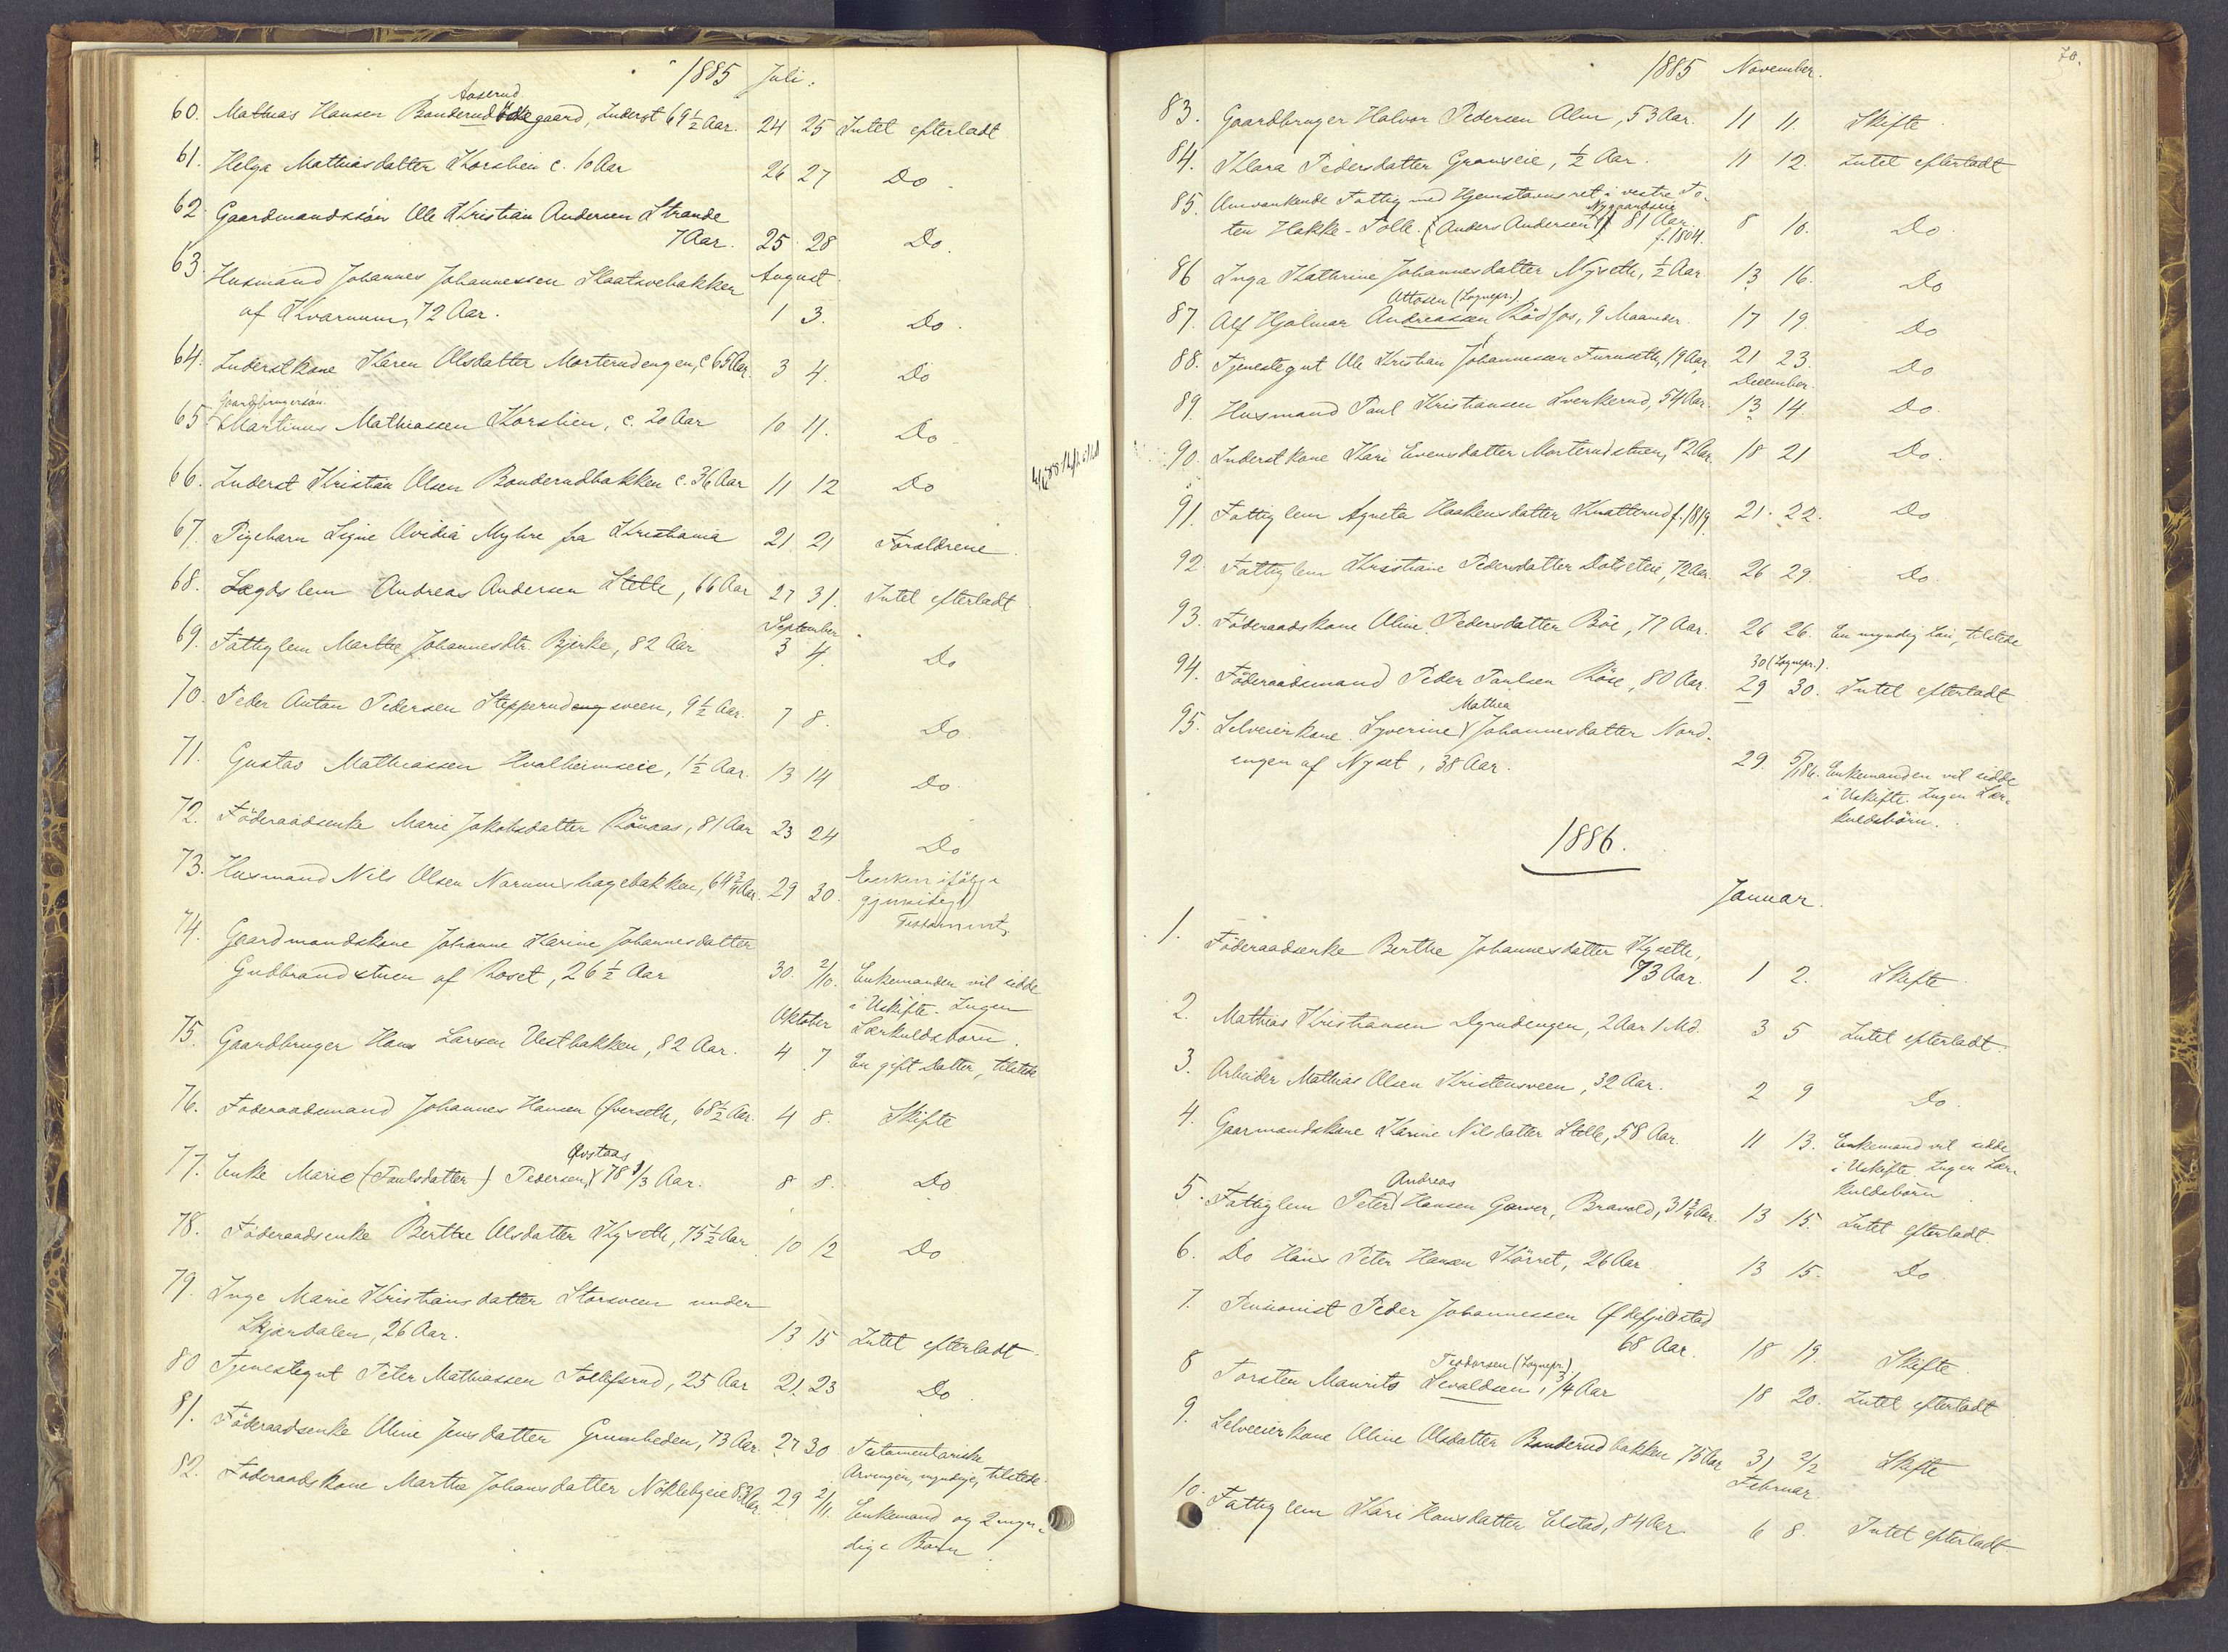 1885 Juli.
Aaserud
60. Mathias Hansen Bonderud gaard, Inderst 69 1/2 Aar. 24 25 Intet efterladt
61. Helga Mathiasdatter Korslien c. 10 Aar 26 27 Do
62. Gaardmandssøn Ole Kristian Andersen Strande
7 Aar. 25 28 Do.
63. Husmand Johannes Johannessen Slaatsvebakken August
af Kvarnum, 72 Aar. 1 3. Do.
64. Inderstkone Karen Olsdatter Morterudengen, c 65 Aar. 3 4. Do
Gaardbrugersøn
65 Martinus Mathiassen Korslien, c. 20 Aar 10 11. Do
66. Inderst Kristian Olsen Bonderudbakken c. 36 Aar 11 12 Do
67. Pigebarn Signe Ovidia Myhre fra Kristiania 21. 21 Forældrene
68. Lægdslem Andreas Andersen Stelle, 66 Aar 27 31. Intet efterladt
September
69. Fattiglem Marthe Johannesdtr. Bjerke, 82 Aar 3 4. Do
70. Peder Anton Pedersen Stepperudengsveen, 9 1/2 Aar. 7 8. Do.
71. Gustav Mathiassen Hvalheimseie, 1 1/2 Aar. 13 14 Do.
72. Føderaadsenke Marie Jakobsdatter Rønaas, 81 Aar 23 24 Do
73. Husmand Nils Olsen Narumshagebakken, 64 3/4 Aar. 29 30. Enken ifølge
gjensidigt
Testament.
74. Gaardmandskone Johanne Karine Johannesdatter
Gudbrandstuen af Roset, 26 1/2 Aar 30. 2/10. Enkemanden vil sidde
i Uskifte. Ingen
Oktober Særkuldsbørn.
75. Gaardbruger Hans Larsen Vestbakken, 82 Aar. 4 7 En gift Datter, tilstede
76. Føderaadsmand Johannes Hansen Øverseth, 68 1/2 Aar. 4 8. Skifte
Ovstaas
77. Enke Marie (Paulsdatter) Pedersen, 78 1/3 Aar. 8 8. Do
78. Føderaadsenke Berthe Olsdatter Kyseth, 75 1/2 Aar 10 12 Do
79. Inge Marie Kristiansdatter Storsveen under
Skjærdalen, 26 Aar. 13 15 Intet efterladt
80 Tjenestegut Peter Mathiassen Tollefsrud, 25 Aar 21. 23 Do
81. Føderaadsenke Oline Jensdatter Grumheden, 73 Aar. 27 30 Testamentariske
Arvinger, myndige, tilstede.
82. Føderaadskone Marthe Johansdatter Nøklebyeie 83 Aar. 29 2/11. Enkemand og 2 myn-
dige Børn
70.
1885 November.
83. Gaardbruger Halvor Pedersen Alm, 53 Aar. 11 11. Skifte
84. Klara Pedersdatter Grønseie, 1/2 Aar. 11 12. Intet efterladt
85. Omvankende Fattig med Hjemstavnsret i vestre To-
Nygaardseie
ten Hakke-Tolle. (Anders Andersen) 81 Aar 8 10. Do.
f. 1804.
86 Inga Kathrine Johannesdatter Nyseth, 1/2 Aar. 13 16. Do
Ottosen (Sognepr.)
87. Alf Hjalmar Andreassen Rødfos, 9 Maaneder. 17 19. Do
88. Tjenestegut Ole Kristian Johannessen Furuseth, 19 Aar, 21 23. Do
December.
89. Husmand Paul Kristiansen Svenkerud, 54 Aar. 13 14 Do.
90. Inderstkone Kari Evensdatter Morterudstuen, 82 Aar. 18 21 Do.
91. Fattiglem Agneta Haakensdatter Knatterud f. 1819. 21. 22. Do
92. Fattiglem Kristiane Pedersdatter Dotseteie, 72 Aar. 26 29. Do.
93. Føderaadskone Oline Pedersdatter Bøe, 77 Aar. 26 26. En myndig Søn, tilstede
30 (Sognepr.).
94. Føderaadsmand Peder Paulsen Røse, 80 Aar. 29 30. Intet efterladt
Mathea
95. Selveierkone Syverine Johannesdatter Nord-
engen af Nyset, 38 Aar. 29. 5/1 86. Enkemanden vil sidde
i Uskifte. Ingen Sær-
kuldsbørn.
1886.
Januar.
1. Føderaadsenke Berthe Johannesdatter Kyseth,
73 Aar. 1 2. Skifte
2. Mathias Kristiansen Dyrudengen, 2 Aar 1 Md. 3 5 Intet efterladt
3. Arbeider Mathias Olsen Kristensveen, 32 Aar. 2 9 Do.
4. Gaarmandskone Karine Nilsdatter Stelle, 58 Aar. 11 13. Enkemand vil sidde
i Uskifte. Ingen Sær-
kuldsbørn
Andreas
5. Fattiglem Peter Hansen Garver, Bravold, 31 3/4 Aar. 13 15. Intet efterladt
6. Do Hans Peter Hansen Kørret, 26 Aar 13 15. Do
7. Pensionist Peder Johannessen
68 Aar. 18 19. Skifte
Teodorsen (Sognepr.)
8 Torsten Maurits Sevaldsen, 3/4 Aar 18 20. Intet efterladt
9. Selveierkone Oline Olsdatter Bonderudbakken 75 Aar 31 2/2 Skifte
Februar.
10. Fattiglem Kari Hansdatter Elstad, 84 Aar. 6 8. Intet efterladt